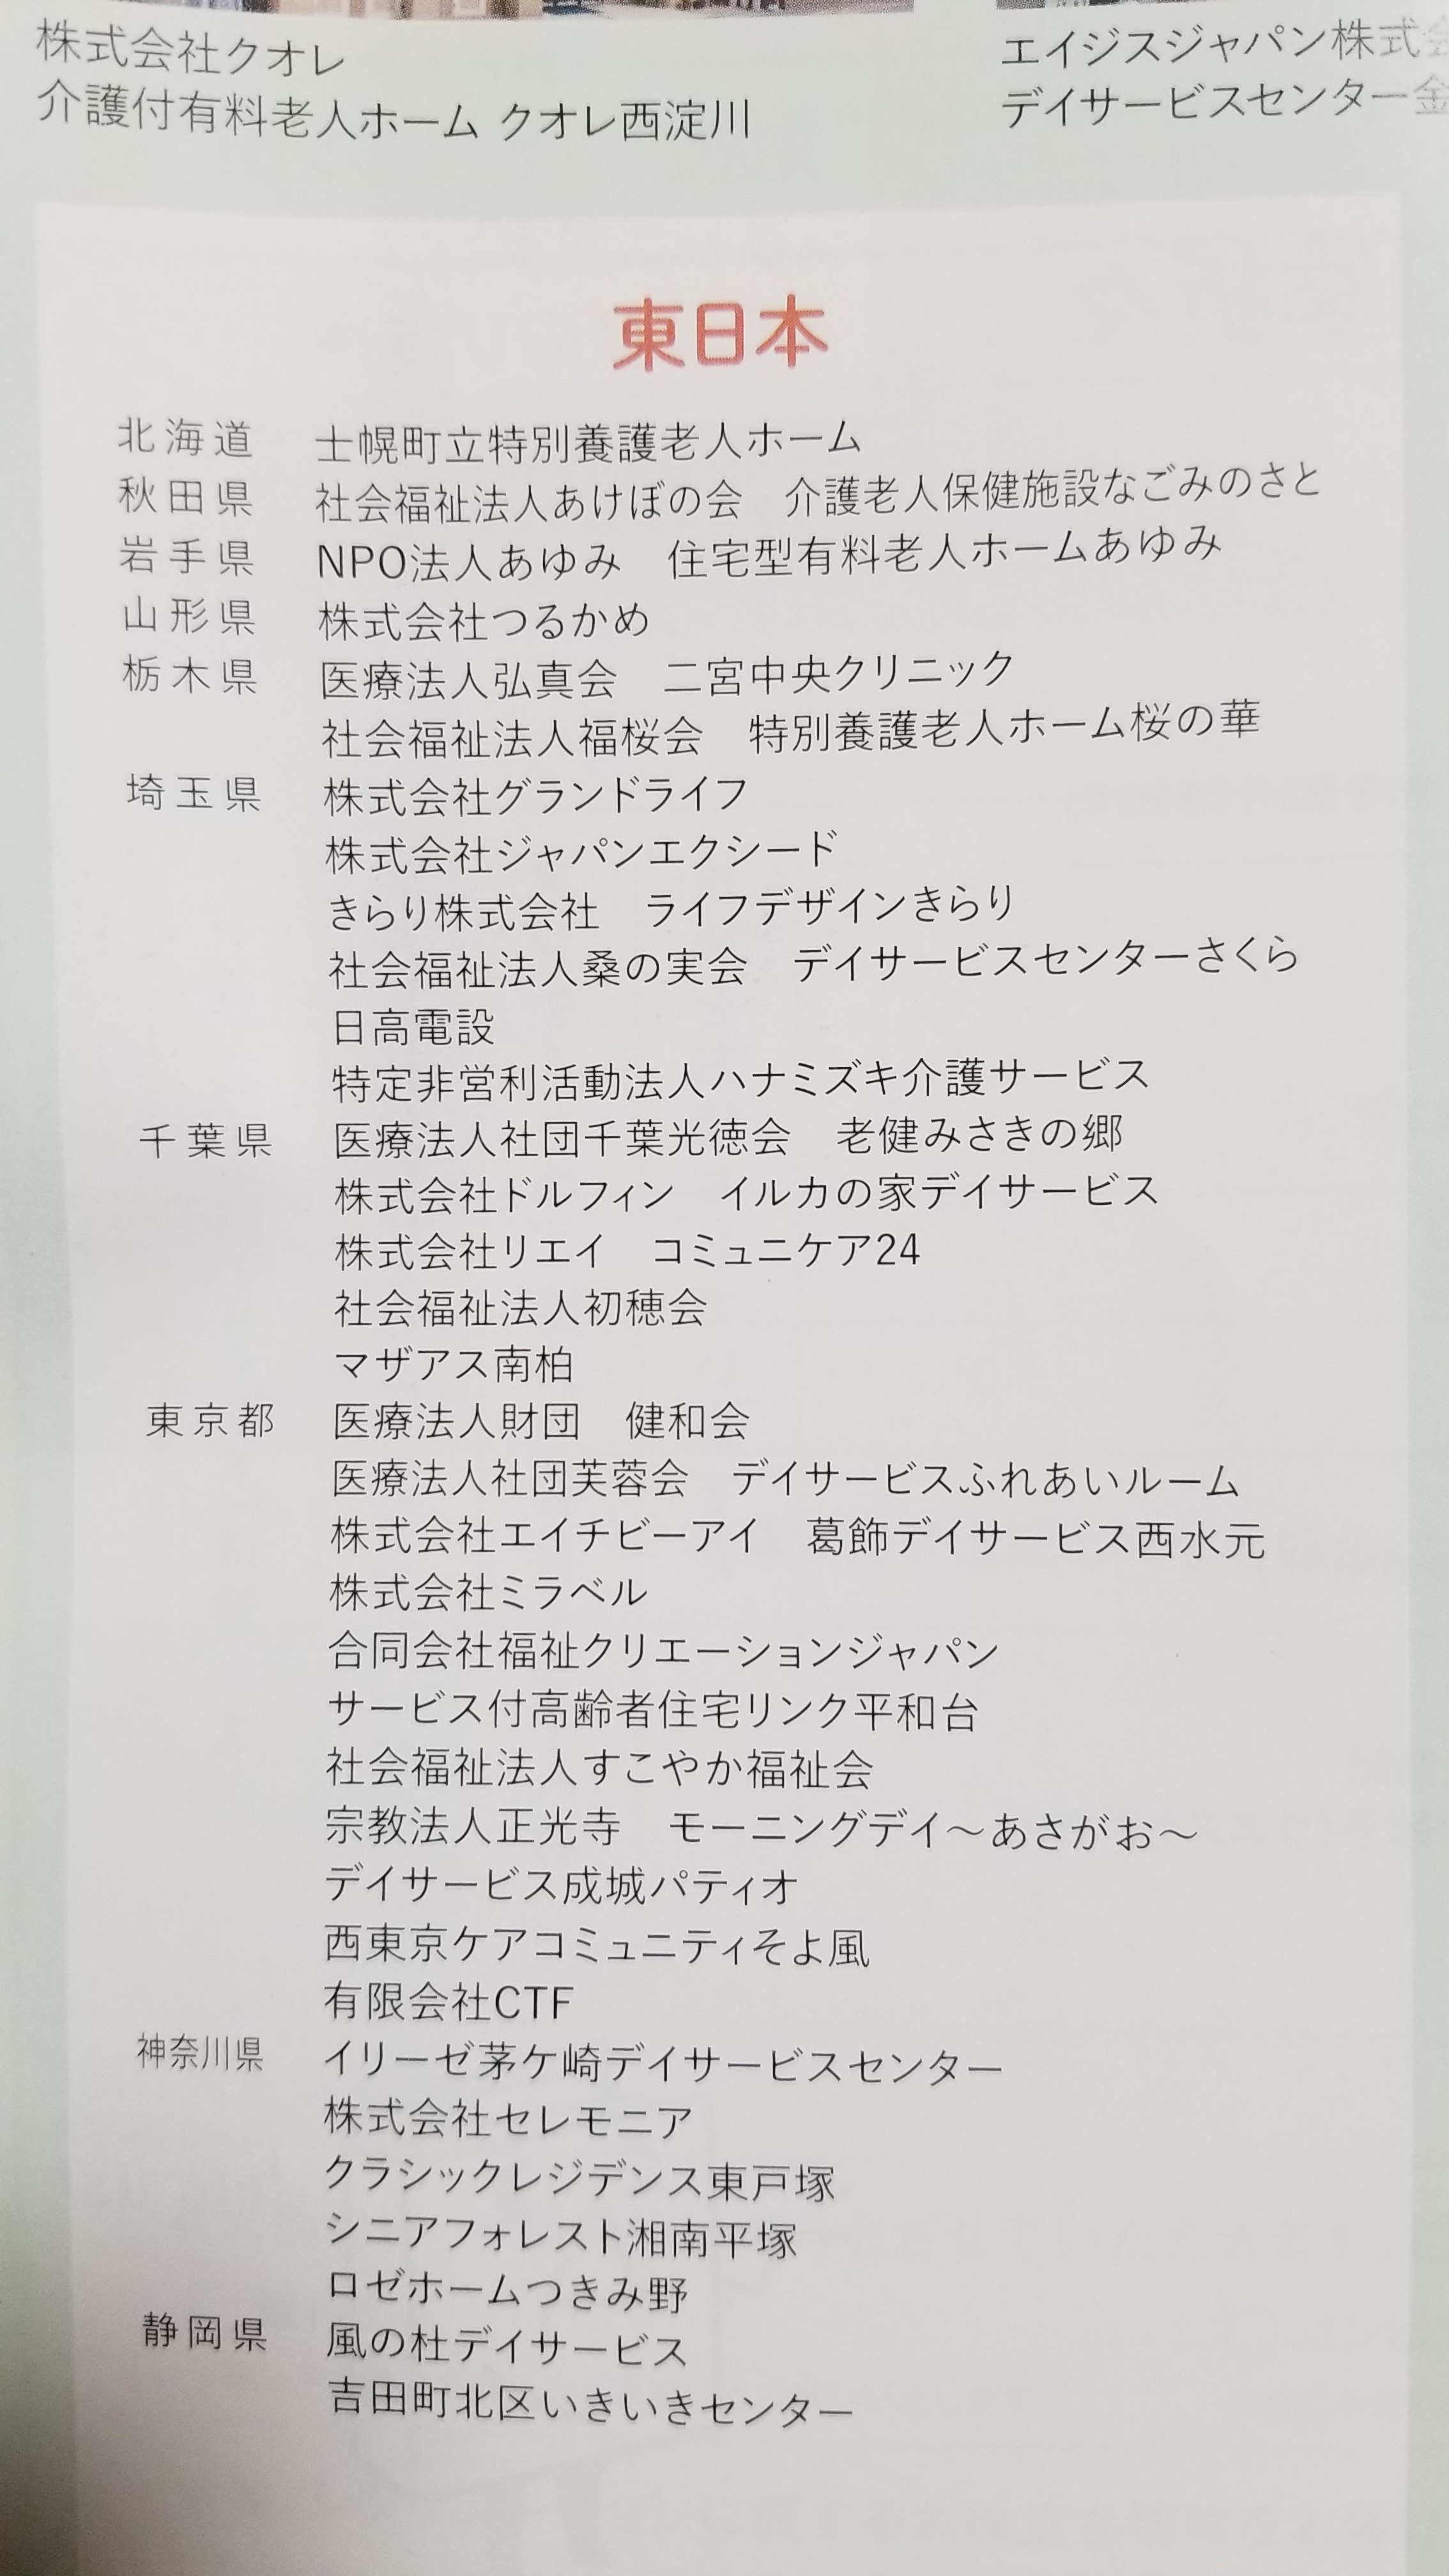 株式会社クオレ
介護付有料老人ホーム クオレ西淀川
エイジスジャパン株式会
デイサービスセンター金
東日本
北海道 士幌町立特別養護老人ホーム
秋田県 社会福祉法人あけぼの会 介護老人保健施設なごみのさと
岩手県 NPO法人あゆみ 住宅型有料老人ホームあゆみ
山形県 株式会社つるかめ
栃木県 医療法人弘真会 二宮中央クリニック
社会福祉法人福桜会 特別養護老人ホーム桜の華
埼玉県 株式会社グランドライフ
株式会社ジャパンエクシード
きらり株式会社 ライフデザインきらり
社会福祉法人桑の実会 デイサービスセンターさくら
日高電設
特定非営利活動法人ハナミズキ介護サービス
千葉県 医療法人社団千葉光徳会 老健みさきの郷
株式会社ドルフィン イルカの家デイサービス
株式会社リエイ コミュニケア24
社会福祉法人初穂会
マザアス南柏
東京都 医療法人財団 健和会
医療法人社団芙蓉会 デイサービスふれあいルーム
株式会社エイチビーアイ 葛飾デイサービス西水元
株式会社ミラベル
合同会社福祉クリエーションジャパン
サービス付高齢者住宅リンク平和台
社会福祉法人すこやか福祉会
宗教法人正光寺 モーニングデイ～あさがお～
デイサービス成城パティオ
西東京ケアコミュニティそよ風
有限会社CTF
神奈川県 イリーゼ茅ケ崎デイサービスセンター
株式会社セレモニア
クラシックレジデンス東戸塚
シニアフォレスト湘南平塚
ロゼホームつきみ野
静岡県 風の杜デイサービス
吉田町北区いきいきセンター